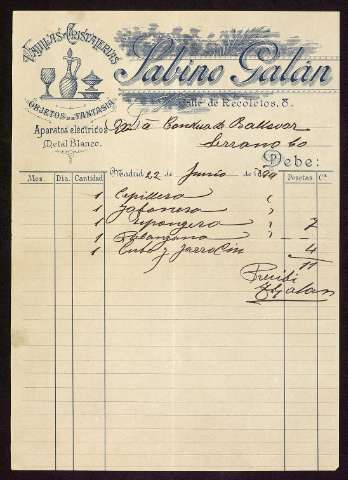 VAJILLAS Y CRISTALERIAS
OBJETOS DE FANTASIA
Aparatos eléctricos
Metal Blanco.
Sabino Galán
Calle de Recoletos, 8.
Condesa de Ballovar
Serrano 60
Debe:
Madrid 22 de Junio de 1899
Mes. Día. Cantidad Pesetas Cs.
1 Cepillera
1 Jabonera
1 Esponjera 7
1 Palangana
1 Cubo y Jarro Cin 4
11
Recibi
Galan